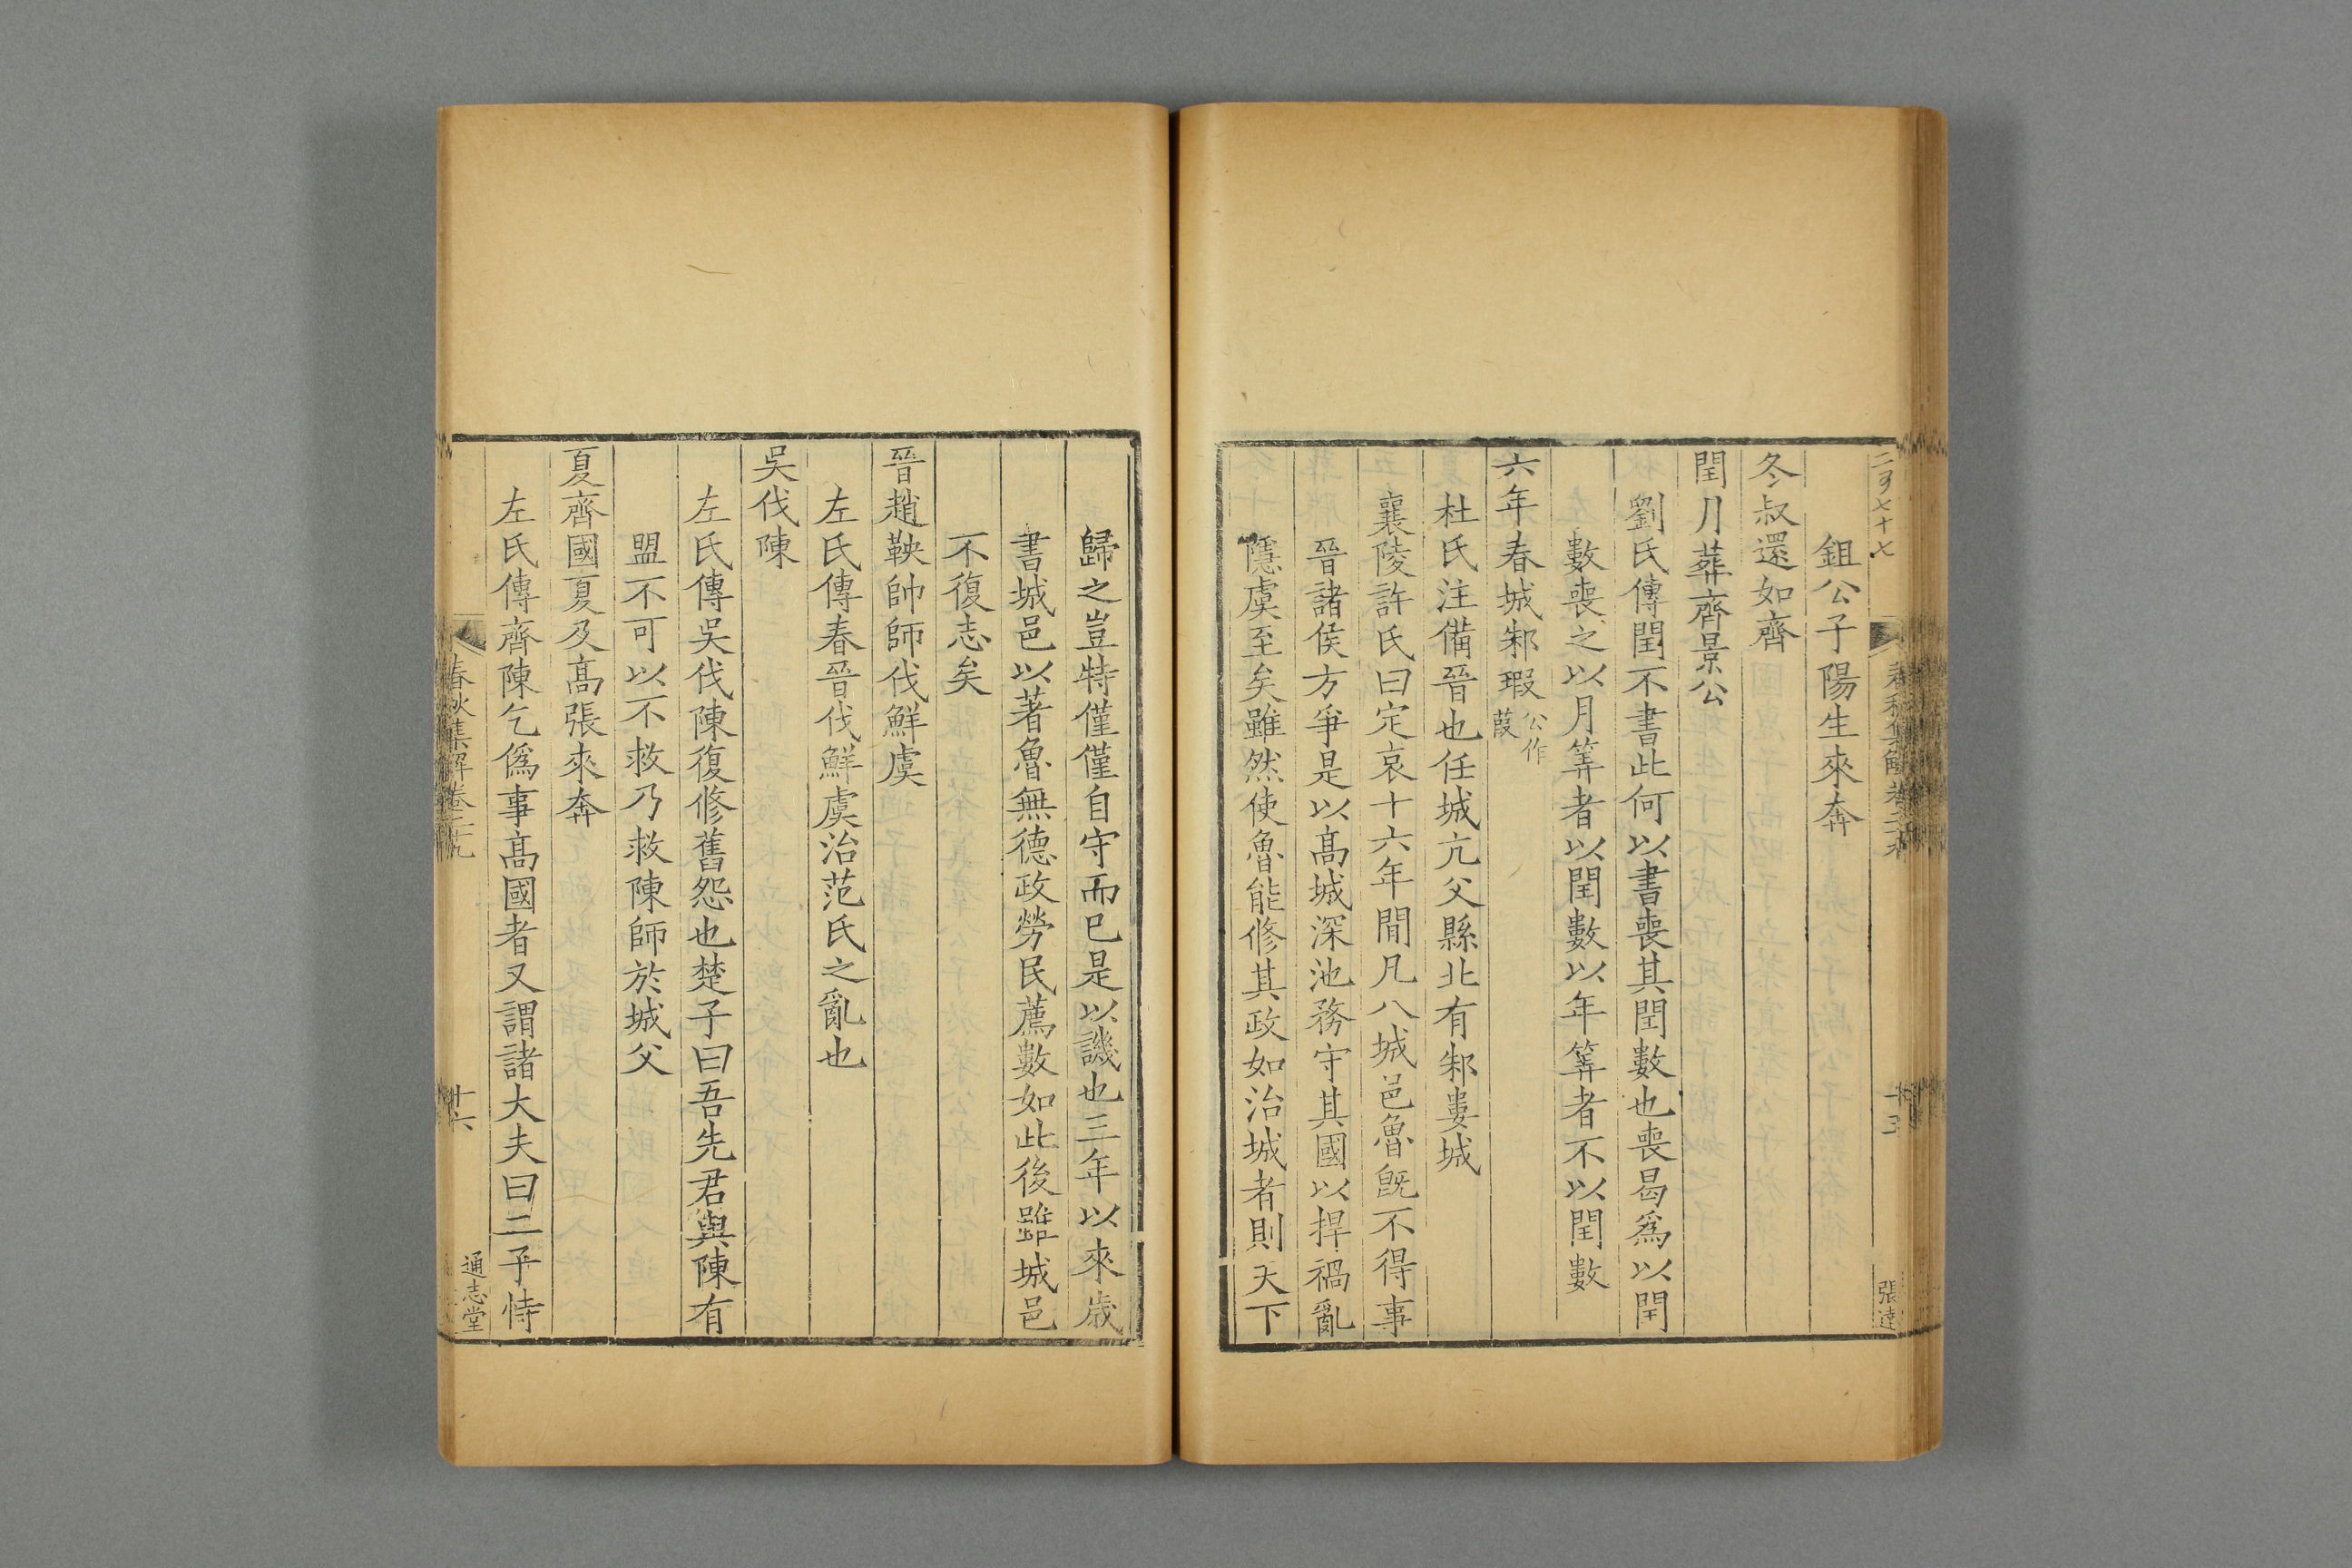 二百七十七
鉏公子陽生來奔
冬叔還如齊
閏月葬齊景公
劉氏傳閏不書此何以書喪其閏數也喪曷爲以閏
數喪之以月筭者以閏數以年筭者不以閏數
六年春城邾瑕公作葭
杜氏注備晉也任城亢父縣北有邾婁城
襄陵許氏曰定哀十六年間凡八城邑魯旣不得事
晉諸侯方爭是以髙城深池務守其國以捍禍亂
隱虞至矣雖然使魯能修其政如治城者則天下
歸之豈特僅僅自守而已是以譏也三年以來歲
書城邑以著魯無德政勞民薦數如此後雖城邑
不復志矣
晉趙鞅帥師伐鮮虞
左氏傳春晉伐鮮虞治范氏之亂也
吳伐陳
左氏傳吳伐陳復修舊怨也楚子曰吾先君與陳有
盟不可以不救乃救陳師於城父
夏齊國夏及髙張來奔
左氏傳齊陳乞僞事髙國者又謂諸大夫曰二子恃
春秋集解卷二十九
十六
通志堂
張達